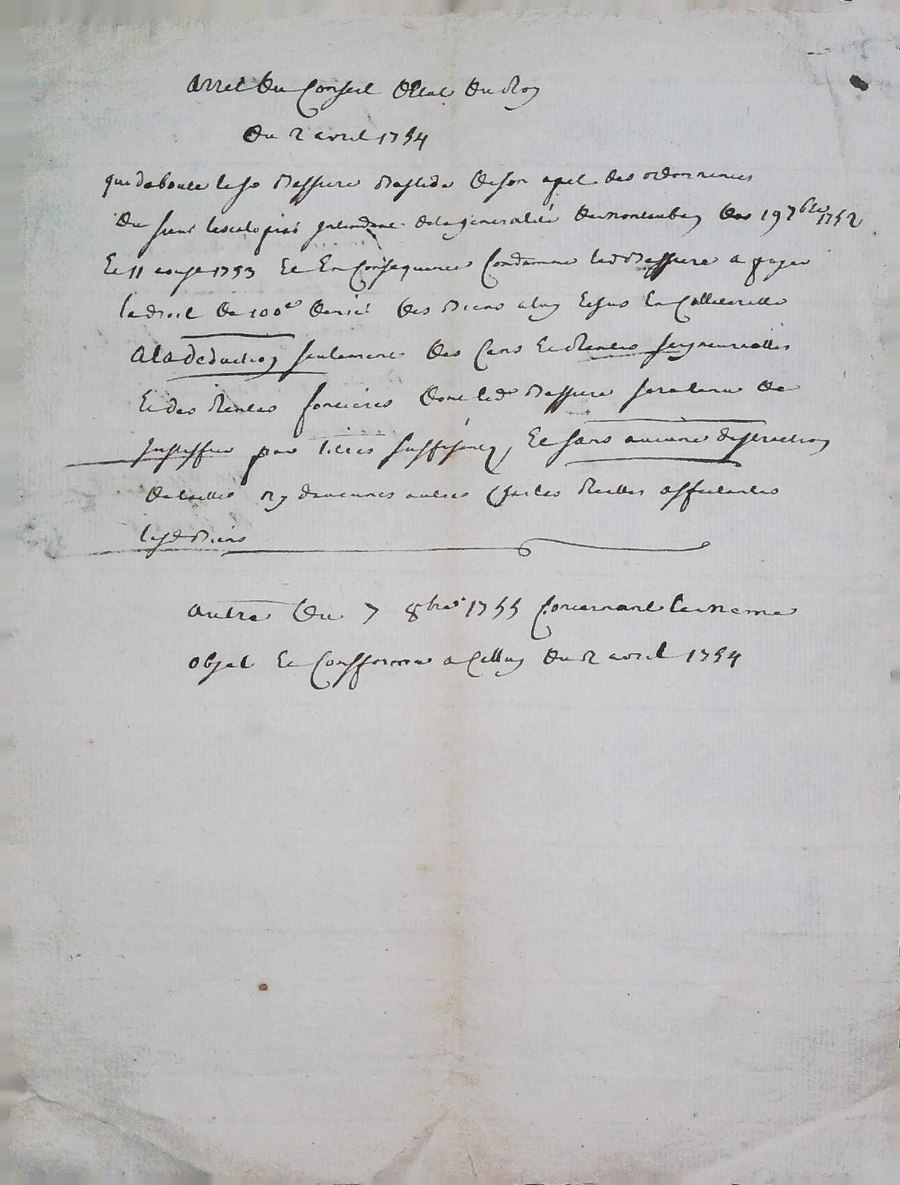 arret du Conseil detat du Roy
du 2 avril 1754
qui deboute le sr Bessiere Bastide de son apel des ordonnences
du sieur Lescalopier jntendant de la generalité de montauban des 19 7bre 1752
Et 11 aoust 1753 Et En Consequence Condamne led Bessiere a payer
le droit de 100e denier des Biens a luy Echus En Collaterelle
a la deduction seulement des Cens Et Rentes seigneurialles
Et des Rentes foncieres dont led Bessiere sera tenu de
justiffier par titres suffisents, Et sans aucune distraction
de tailles ny daucunes autres Charges Reelles affectantes
lesd Biens
autre du 7 8bre 1755 Concernant le meme
objet Et Confforme a Celluy du 2 avril 1754